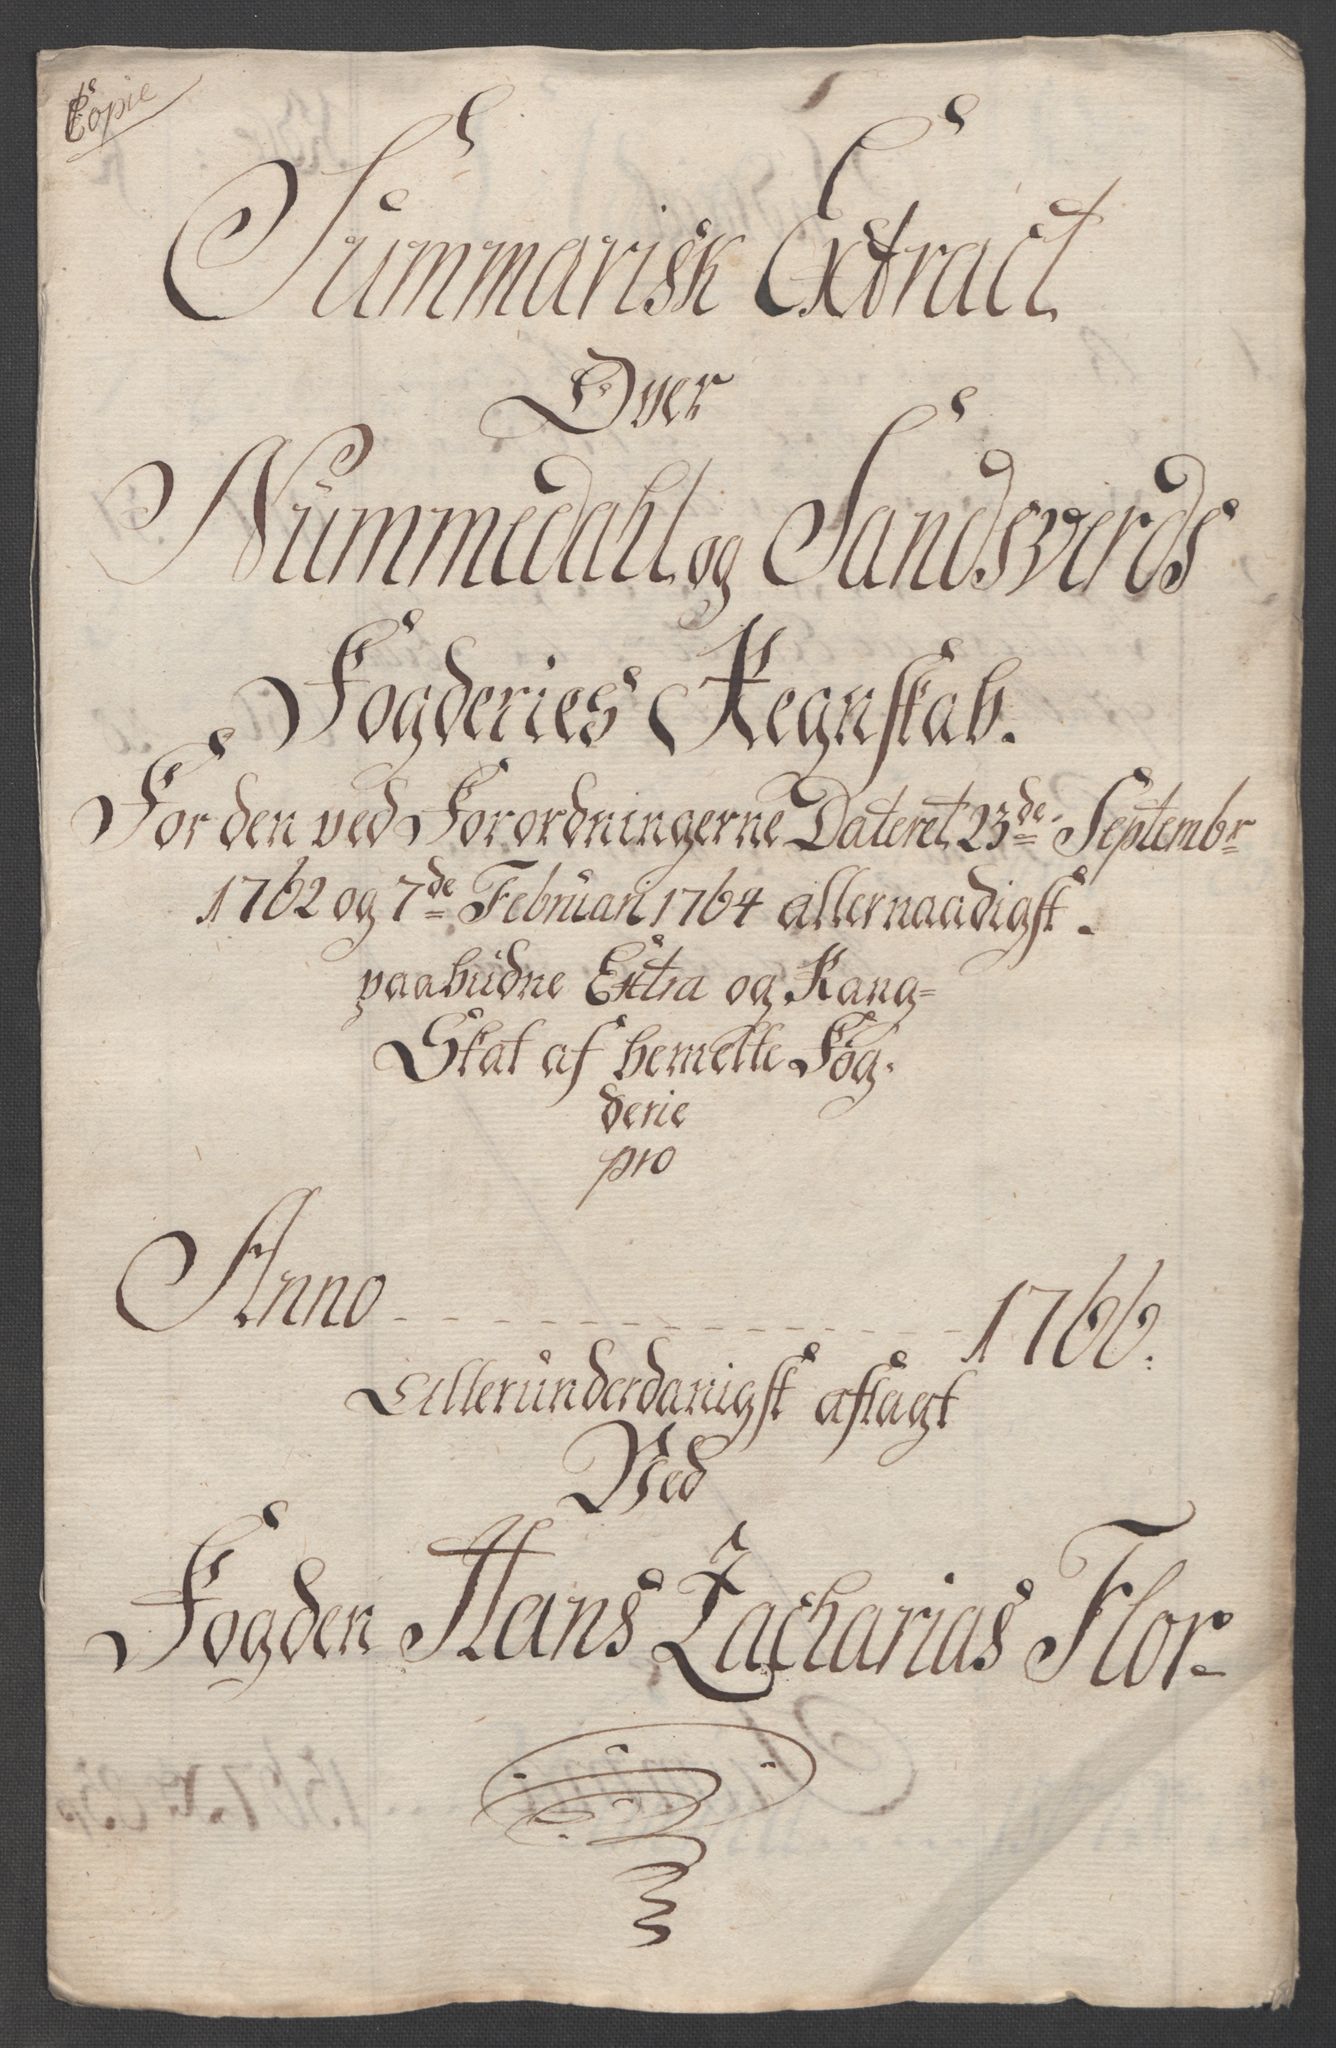 Copie
Summarisk Extract
Over
Nummedahl og Sandsverds
Fogderies Regnskab.
For den ved Forordningerne Dateret 23de Septembr
1762 og 7de Februari 1764 allernaadigst
paabudne Extra og Rang=
Skat af bemelte Fog-
derie
pro
Anno - - - - - - - - - - 1766.
Allerunderdanigst aflagt
Ved
Fogden Hans Zacharias Flor